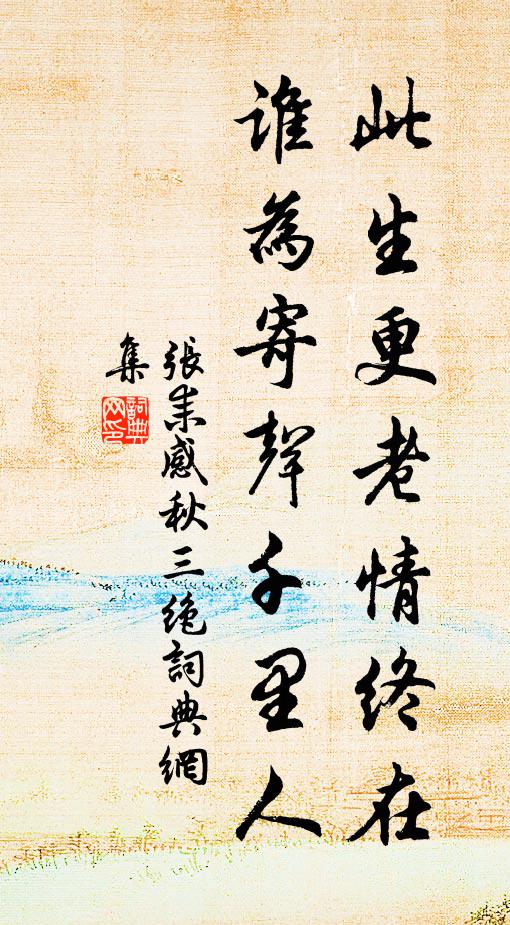 此生更老情終在
誰為寄聲千里人
張耒感秋三絕詞典網
集
詞典
网印